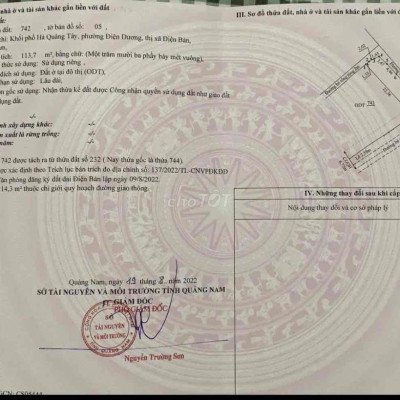 nhà ở và tài sản khác gắn liền với đất
đất: 742 , tờ bản đồ số: 05
chỉ: Khối phố Hà Quảng Tây, phường Điện Dương, thị xã Điện Bàn,
tích: 113,7 m², bằng chữ: (Một trăm mười ba phẩy bảy mét vuông);
thức sử dụng: Sử dụng riêng
đích sử dụng: Đất ở tại đô thị (ODT);
hạn sử dụng: Lâu dài;
gốc sử dụng: Nhận thừa kế đất được Công nhận quyền sử dụng đất như giao đất
dụng đất.
-/-
ình xây dựng khác: -/-
n xuất là rừng trồng: -/-
năm: -/-
742 được tách ra từ thửa đất số 232 ( Nay thửa gốc là thửa 744)
ược xác định theo Trích lục bản trích đo địa chính số: 137/2022/TL-CNVPĐKĐĐ
ăn phòng đăng ký đất đai Điện Bàn lập ngày 09/8/2022.
14,3 m² thuộc chỉ giới quy hoạch đường giao thông.
Quảng Nam, ngày 19 tháng 8 năm 2022
SỞ TÀI NGUYÊN VÀ MÔI TRƯỜNG TỈNH QUẢNG NAM
GIÁM ĐỐC
PHÓ GIÁM ĐỐC
SỞ
TÀI NGUYÊN
VÀ MÔI TRƯỜNG
Nguyễn Trường Sơn
III. Sơ đồ thửa đất, nhà ở và tài sản khác gắn liền với đ
IV. Những thay đổi sau khi cấp
Nội dung thay đổi và cơ sở pháp lý
chợTỐT